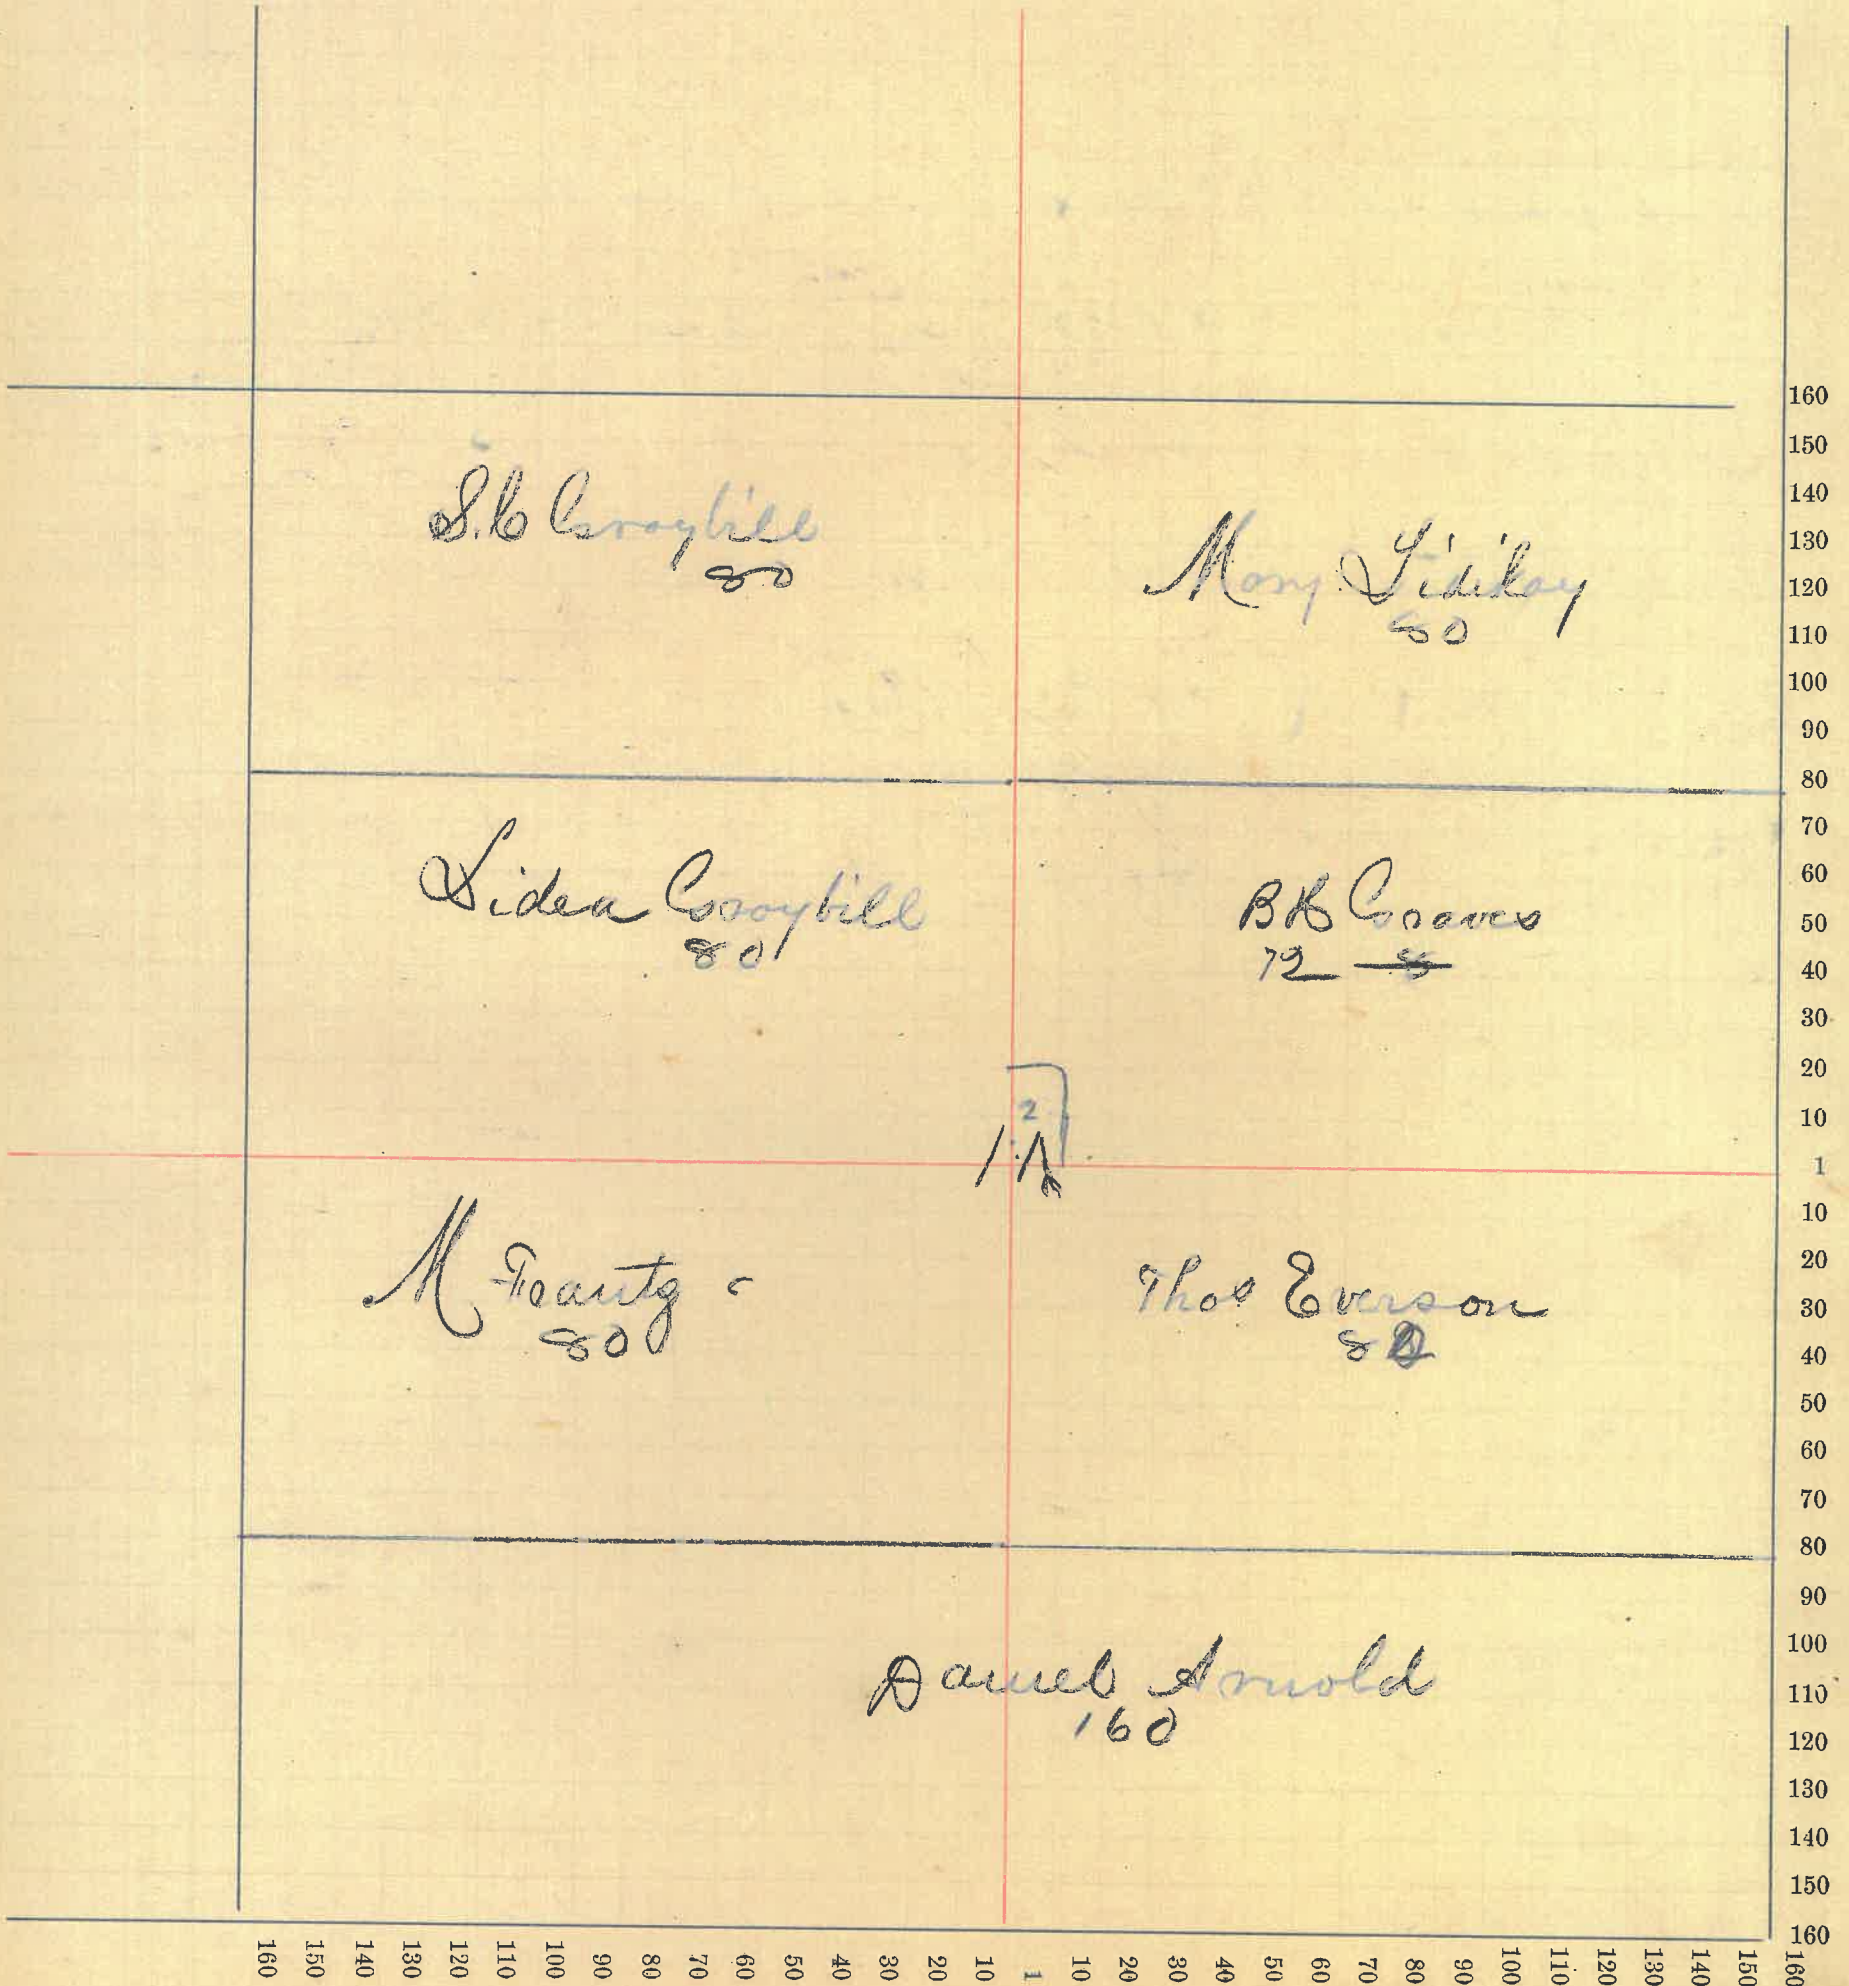 S. C Graybill
80
Mary Sidikay
80
Sidea Graybill
80
B K Graves
72 8
2
M Frantz
80
Thos Everson
82
Daniel Arnold
160
160
150
140
130
120
110
100
90
80
70
60
50
40
30
20
10
1
10
20
30
40
50
60
70
80
90
100
110
120
130
140
150
160
160 150 140 130 120 110 100 90 80 70 60 50 40 30 20 10 1 10 20 30 40 50 60 70 80 90 100 110 120 130 140 150 160